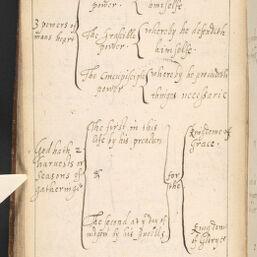 power.
himselfe
3 powers of
mans heart
The Irascible
power.
whereby he defendeth
himselfe.
The Concupiscible
power
whereby he provideth
thinges necessarie
God hath 2
harvests or
seasons of
gatheringe
the first in this
life by his preachers
&
The second at ye day of
by his Angells
for
the
kingdome of
Grace.
kingdome
of Glorye